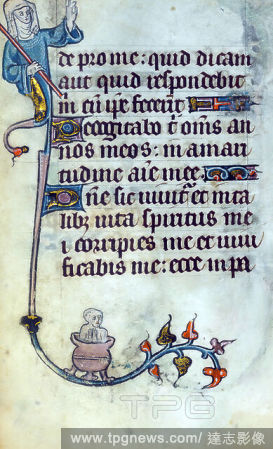 de pro me: quid dicam
aut quid respondebit
m̄ cū ip̄e fecerit
Recogitabo t̄ om̄s an
nos meos: in amari
tudine aīe mee.
Dn̄e sic uiuit᷑ et in ta
libꝫ uita spiritus me
i corripies me et uiui
ficabis me: ecce in pa
TPG
www.tpgnews.com/ 達志影像